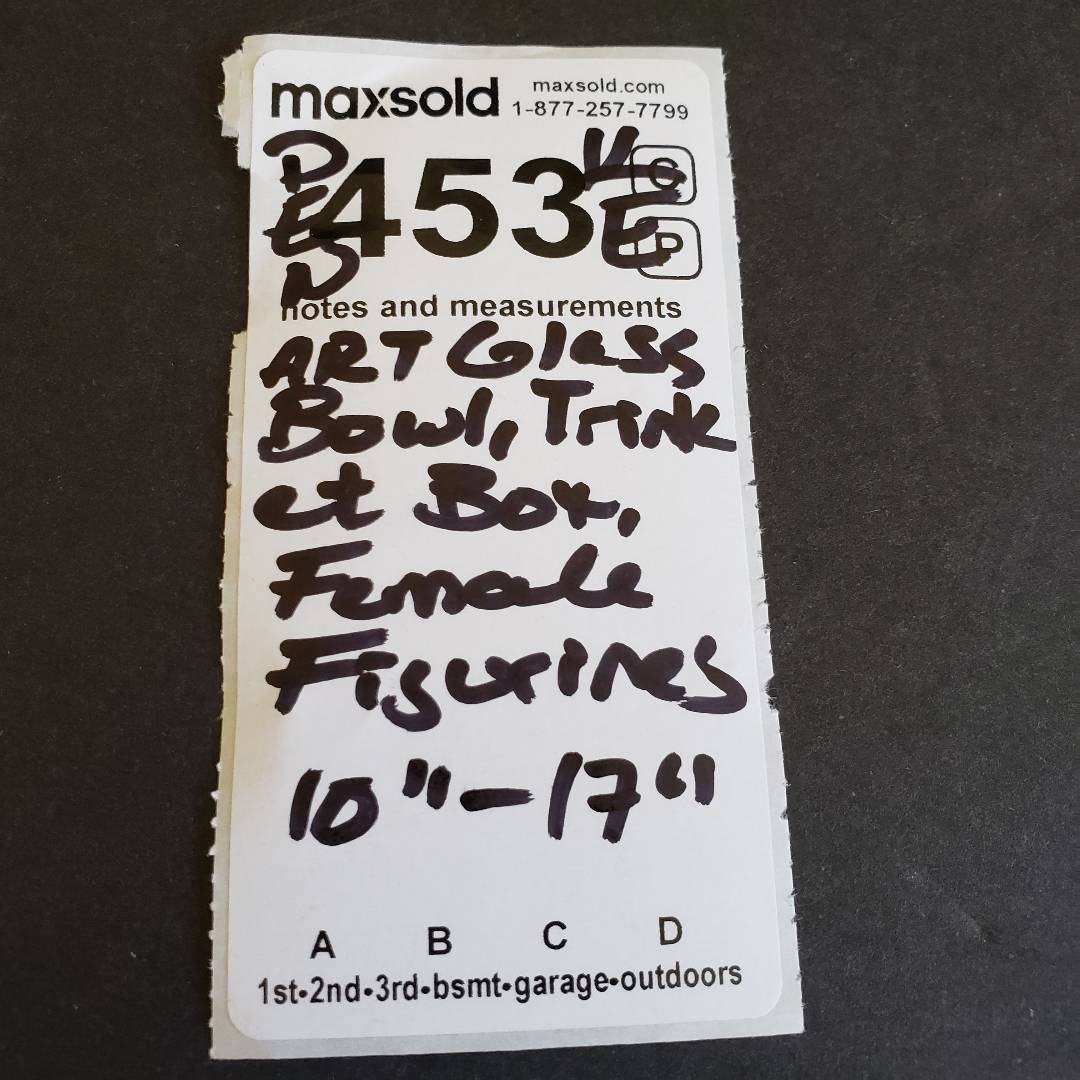 maxsold maxsold.com
1-877-257-7799
453 C
P
notes and measurements
ART Glass
Bowl, Trink
et Box,
Female
Figurines
10"-17"
A B C D
1st•2nd•3rd•bsmt•garage•outdoors